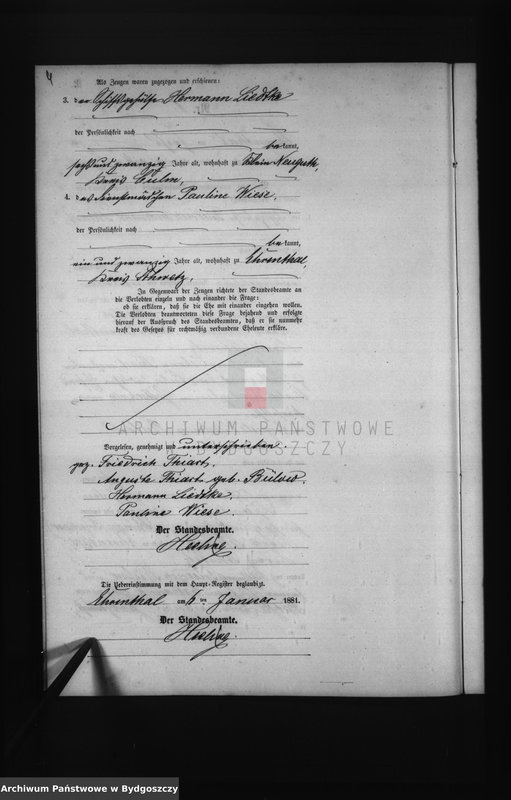 4
Als Zeugen waren zugezogen und erschienen:
3. der Schiffsgehülfe Hermann Liedtke
der Persönlichkeit nach
bekannt,
sechsundzwanzig Jahre alt, wohnhaft zu Klein Neuguth,
Kreis Culm,
4. das Dienstmädchen Pauline Wiese,
der Persönlichkeit nach
bekannt,
einundzwanzig Jahre alt, wohnhaft zu Ehrenthal,
Kreis Schwetz.
In Gegenwart der Zeugen richtete der Standesbeamte an
die Verlobten einzeln und nach einander die Frage:
ob sie erklären, daß sie die Ehe mit einander eingehen wollen.
Die Verlobten beantworteten diese Frage bejahend und erfolgte
hierauf der Ausspruch des Standesbeamten, daß er sie nunmehr
kraft des Gesetzes für rechtmäßig verbundene Eheleute erkläre.
ARCHIWUM PAŃSTWOWE
W BYDGOSZCZY
Vorgelesen, genehmigt und unterschrieben.
gez. Friedrich Thiart,
Auguste Thiart geb.
Hermann Liedtke,
Pauline Wiese.
Der Standesbeamte.
Die Uebereinstimmung mit dem Haupt-Register beglaubigt.
Ehrenthal am 6 ten Januar 1881.
Der Standesbeamte.
Archiwum Państwowe w Bydgoszczy